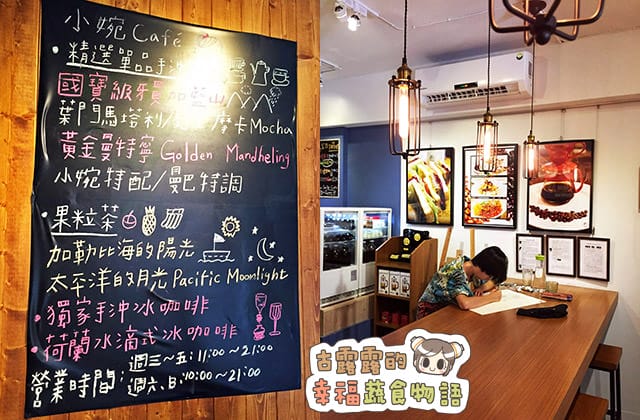 小婉Café
• 精選單品手沖
國寶級牙買加藍山
葉門馬塔利/ 摩卡Mocha
黃金曼特寧 Golden Mandheling
小婉特配/曼巴特調
• 果粒茶
加勒比海的陽光
太平洋的月光 Pacific Moonlight
• 獨家手沖冰咖啡
• 荷蘭水滴式冰咖啡
營業時間:
週三~五:11:00~21:00
週六、日:10:00~21:00
古露露的
幸福蔬食物語